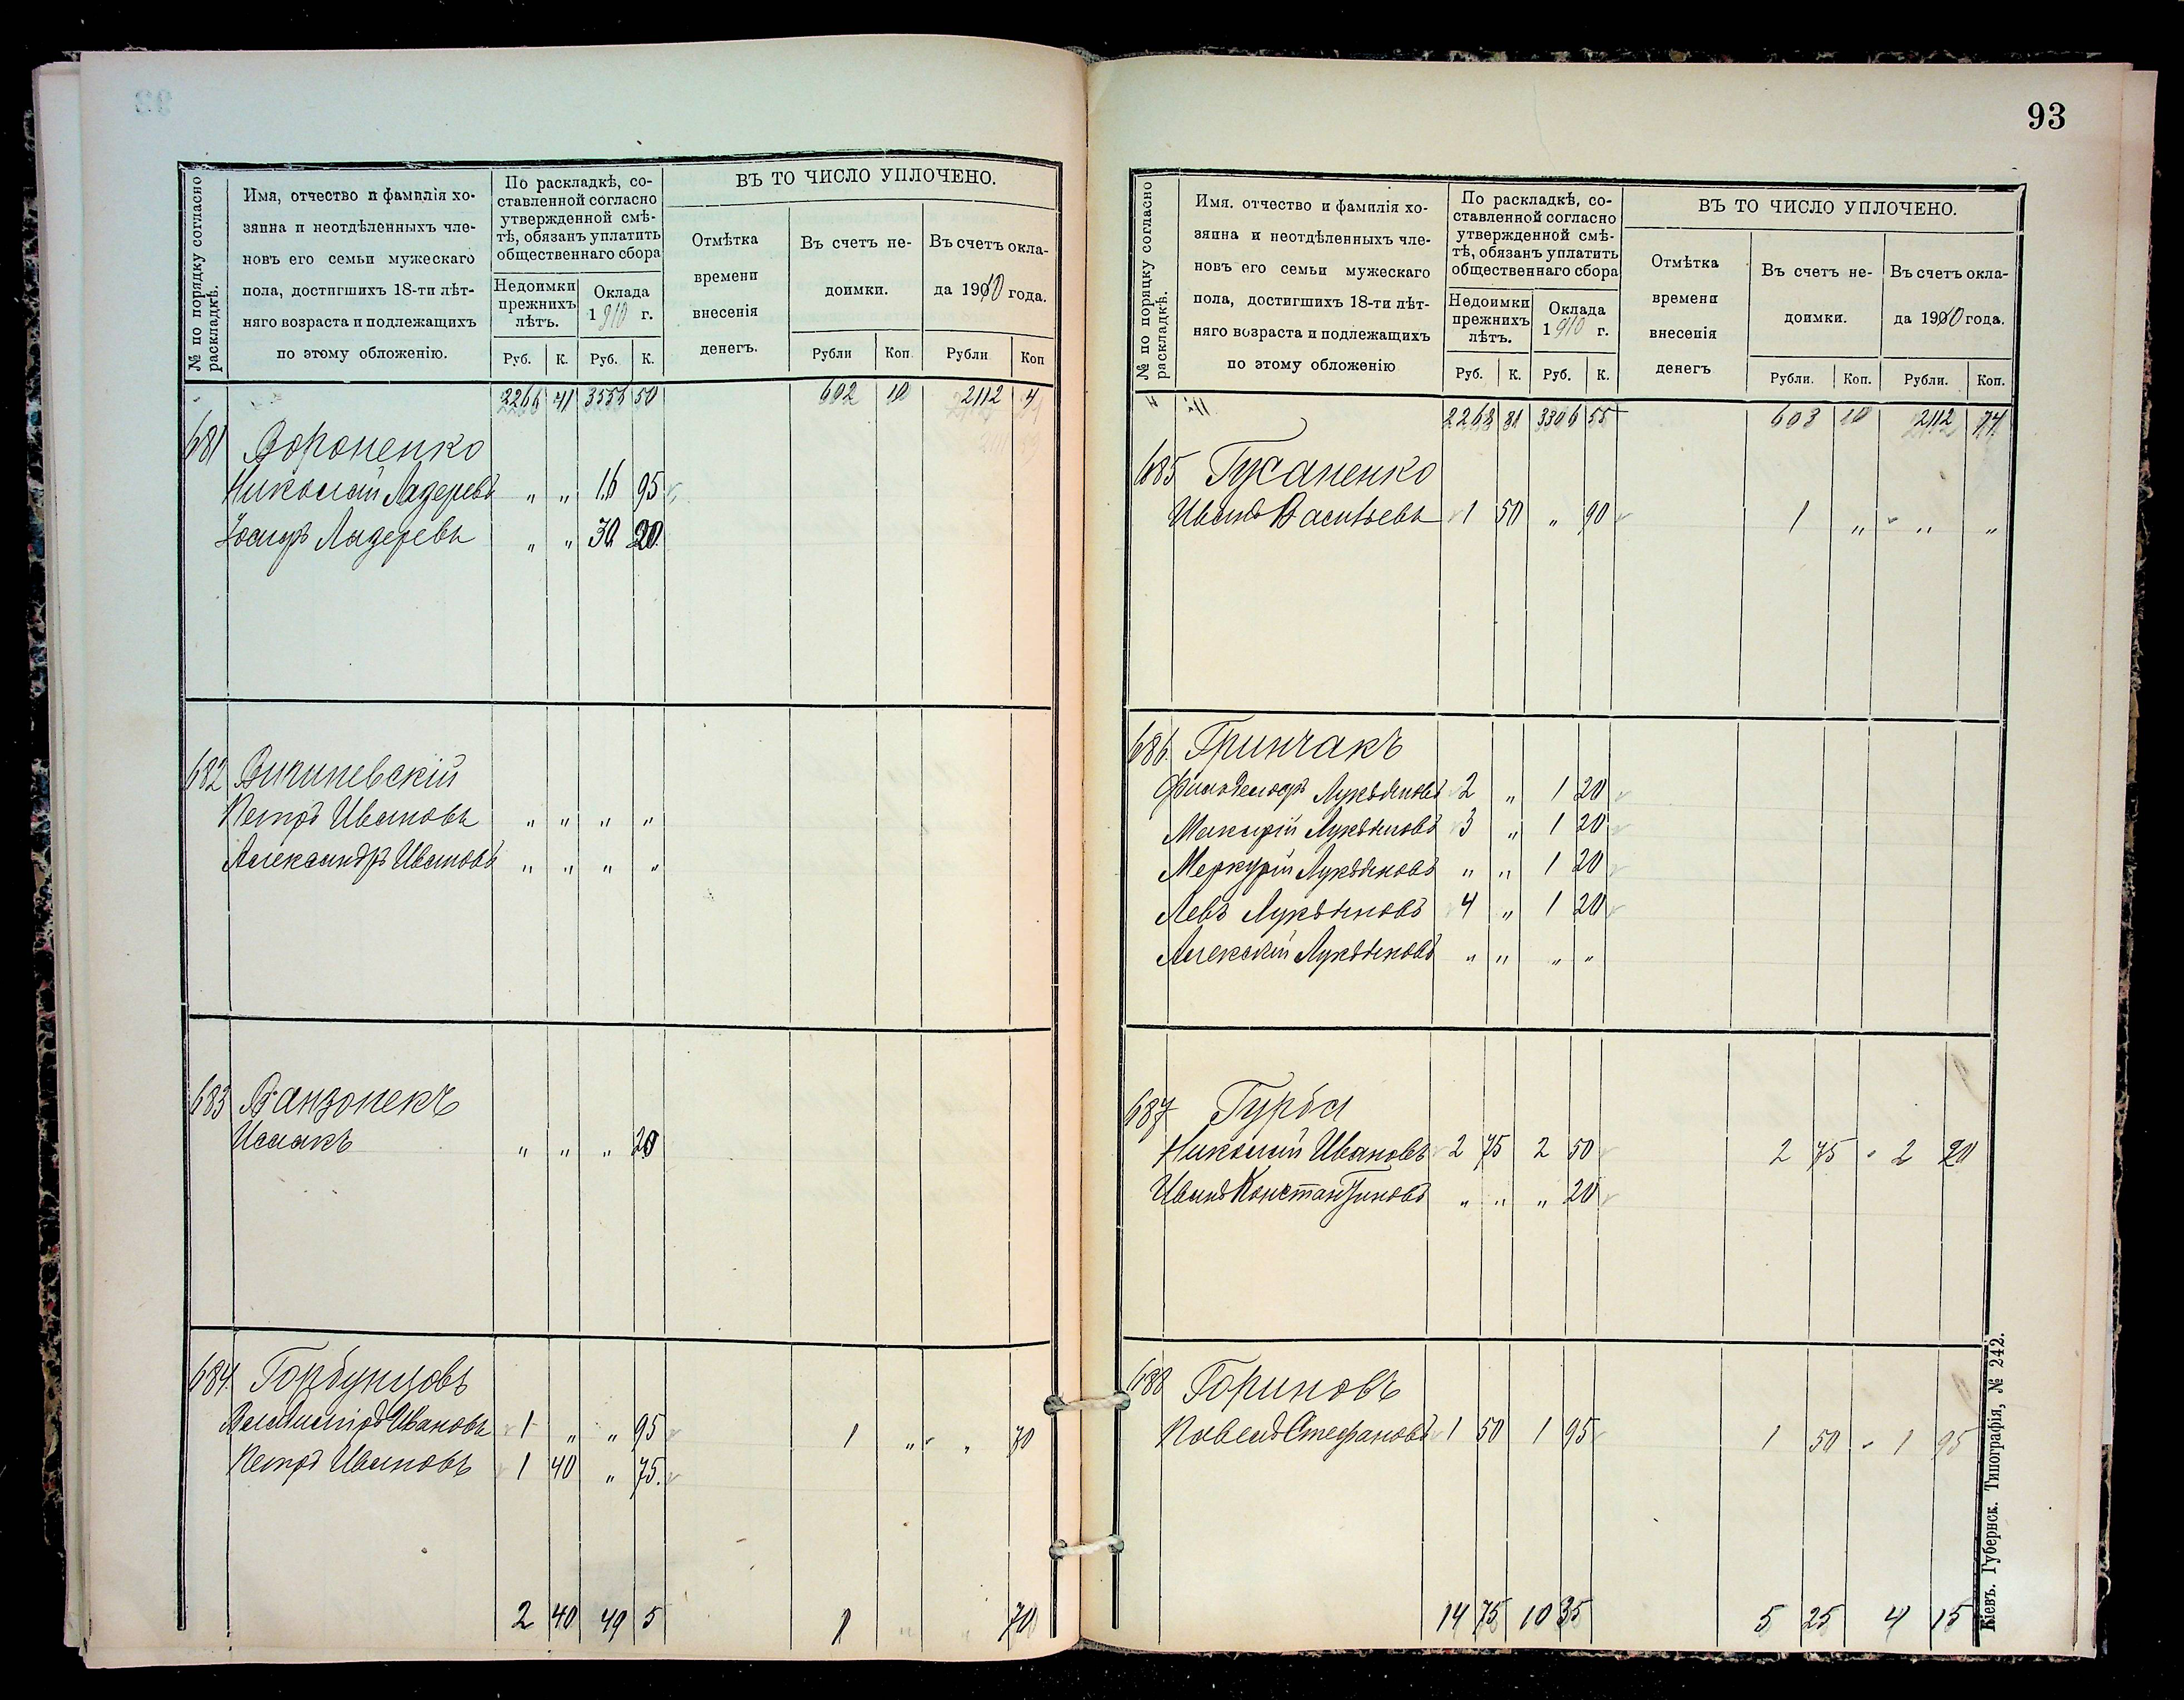 № по порядку согласно раскладкѣ.
Имя, отчество и фамилія хо-
зяина и неотдѣленныхъ чле-
новъ его семьи мужескаго
пола, достигшихъ 18-ти лѣт-
няго возраста и подлежащихъ
по этому обложенію.
По раскладкѣ, со-
ставленной согласно
утвержденной смѣ-
тѣ, обязанъ уплатить
общественнаго сбора
Недоимки
прежнихъ
лѣтъ.
Оклада
1910 г.
Руб. К. Руб. К.
ВЪ ТО ЧИСЛО УПЛОЧЕНО.
Отмѣтка
времени
внесенія
денегъ.
Въ счетъ не-
доимки.
Въ счетъ окла-
да 1910 года.
Рубли Коп. Рубли Коп
2266 41 50 602 10 2112 4
681 Вороненко
Николай Лазеревъ " " 16 95
Іосифъ Лазеревъ " " 30 20
682
Петръ Ивановъ " " " "
Александръ Ивановъ " " " "
683 Ванзонекъ
Исаакъ " " " 20
684. Горбунцовъ
Ивановъ 1 " " 95 1 " " 70
Петръ Ивановъ 1 40 " 75.
2 40 49 5 1 " " 70
93
№ по порядку согласно раскладкѣ.
Имя. отчество и фамилія хо-
зяина и неотдѣленныхъ чле-
новъ его семьи мужескаго
пола, достигшихъ 18-ти лѣт-
няго возраста и подлежащихъ
по этому обложенію
По раскладкѣ, со-
ставленной согласно
утвержденной смѣ-
тѣ, обязанъ уплатить
общественнаго сбора
Недоимки
прежнихъ
лѣтъ.
Оклада
1910 г.
Руб. К. Руб. К.
ВЪ ТО ЧИСЛО УПЛОЧЕНО.
Отмѣтка
времени
внесенія
денегъ
Въ счетъ не-
доимки.
Въ счетъ окла-
да 1910 года.
Рубли. Коп. Рубли. Коп.
2268 81 55 603 10 2112 74
685 Гусаненко
Иванъ Васильевъ 1 50 " 90 1 " " "
686. Гринчакъ
Лукьяновъ 2 " 1 20
Лукьяновъ 3 " 1 20
Меркурій Лукьяновъ " " 1 20
Левъ Лукьяновъ 4 " 1 20
Алексѣй Лукьяновъ " " " "
687 Гурба
Николай Ивановъ 2 75 2 50 2 75 2 20
Иванъ Константиновъ " " " 20
688 Гориновъ
Павелъ Стефановъ 1 50 1 95 1 50 1 95
14 75 10 35 5 25 4 15
Кіевъ. Губернск. Типографія, № 242.